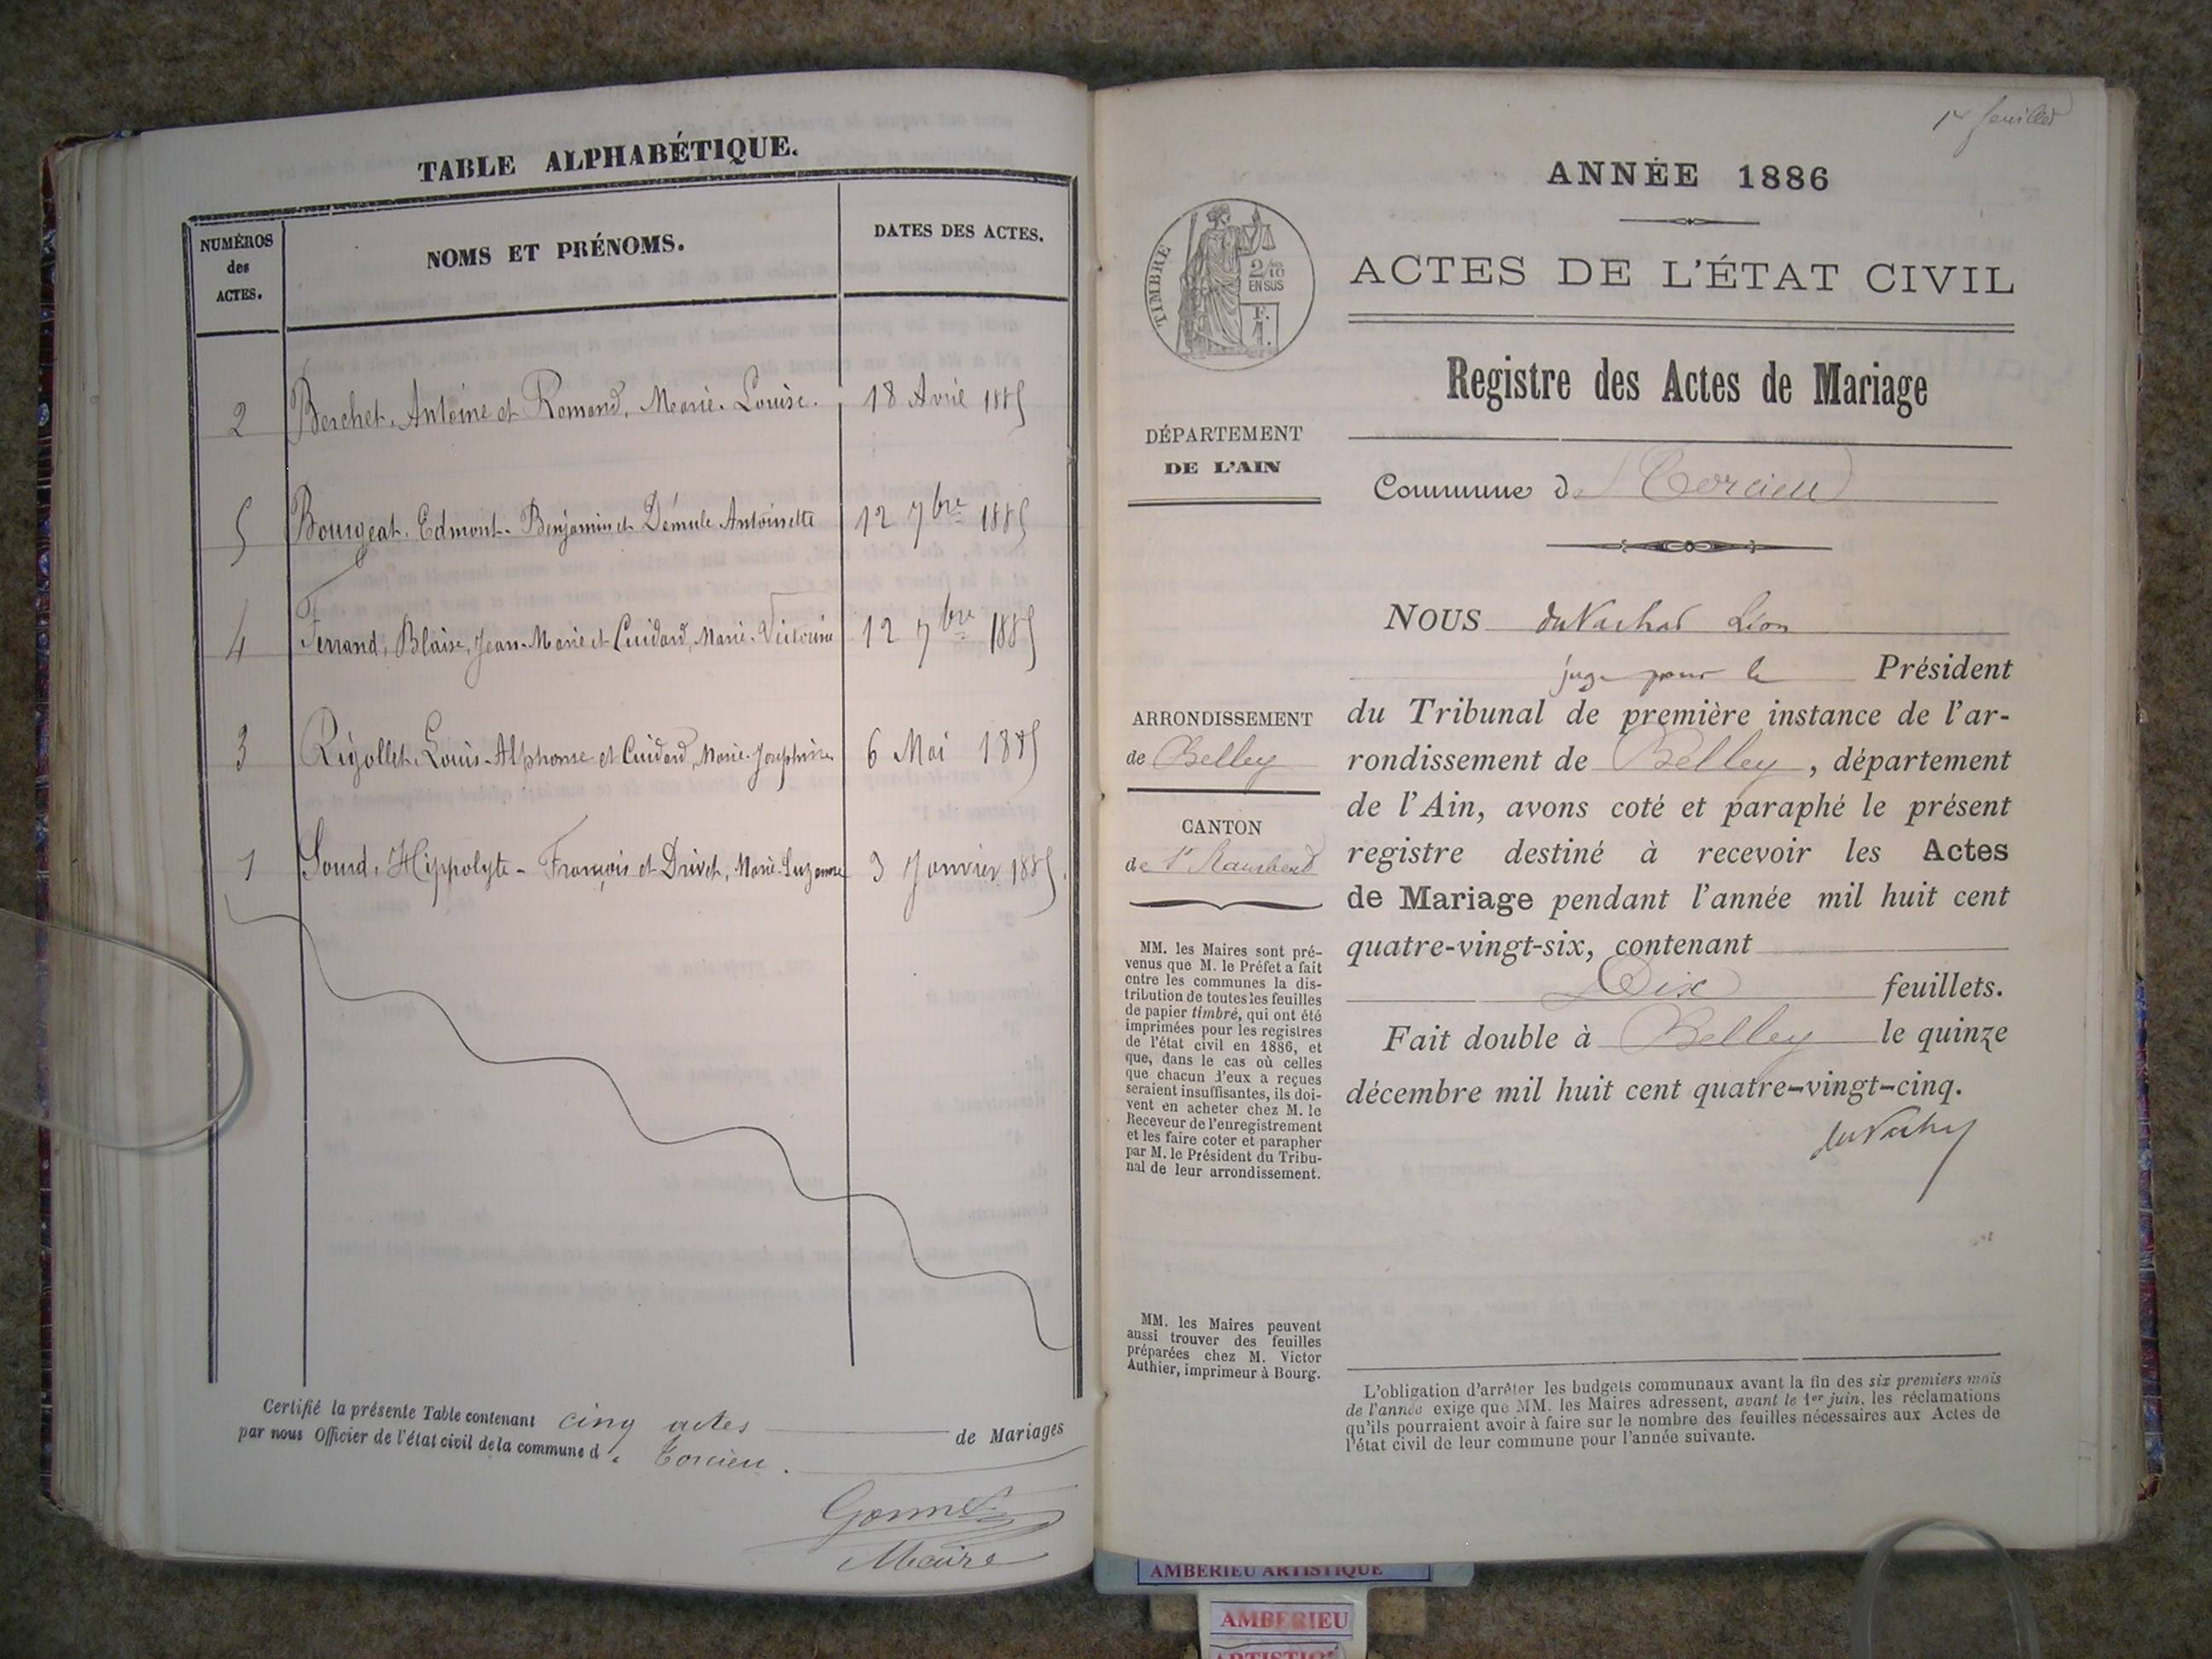 TABLE ALPHABÉTIQUE.
NUMÉROS
des
ACTES.
NOMS ET PRÉNOMS.
DATES DES ACTES.
2 Berchet, Antoine et Romand, Marie-Louise. 18 Avril 1885
5 Bourgeat, Edmont-Benjamin et Démule Antoinette 12 7bre 1885
4 Ferrand, Blaise, Jean-Marie et Cuidard, Marie-Victorine 12 7bre 1885
3 Rigollet, Louis-Alphonse et Cuidard, Marie-Joséphine 6 Mai 1885
1 Sourd, Hippolyte-François et Drivet, Marie-Suzanne 3 Janvier 1885.
Certifié la présente Table contenant cinq actes de Mariages
par nous Officier de l'état civil de la commune de Torcieu.
Maire
1er feuillet
ANNÉE 1886
TIMBRE
2/10
EN SUS
ACTES DE L'ÉTAT CIVIL
Registre des Actes de Mariage
DÉPARTEMENT
DE L'AIN
Commune de Torcieu
NOUS duVachat Léon
juge pour le Président
du Tribunal de première instance de l'ar-
rondissement de Belley, département
de l'Ain, avons coté et paraphé le présent
registre destiné à recevoir les Actes
de Mariage pendant l'année mil huit cent
quatre-vingt-six, contenant
Dix feuillets.
Fait double à Belley le quinze
décembre mil huit cent quatre-vingt-cinq.
ARRONDISSEMENT
de Belley
CANTON
de St Rambert
MM. les Maires sont pré-
venus que M. le Préfet a fait
entre les communes la dis-
tribution de toutes les feuilles
de papier timbré, qui ont été
imprimées pour les registres
de l'état civil en 1886, et
que, dans le cas où celles
que chacun d'eux a reçues
seraient insuffisantes, ils doi-
vent en acheter chez M. le
Receveur de l'enregistrement
et les faire coter et parapher
par M. le Président du Tribu-
nal de leur arrondissement.
MM. les Maires peuvent
aussi trouver des feuilles
préparées chez M. Victor
Authier, imprimeur à Bourg.
L'obligation d'arrêter les budgets communaux avant la fin des six premiers mois
de l'année exige que MM. les Maires adressent, avant le 1er juin, les réclamations
qu'ils pourraient avoir à faire sur le nombre des feuilles nécessaires aux Actes de
l'état civil de leur commune pour l'année suivante.
AMBERIEU ARTISTIQUE
AMBERIEU
ARTISTIQUE